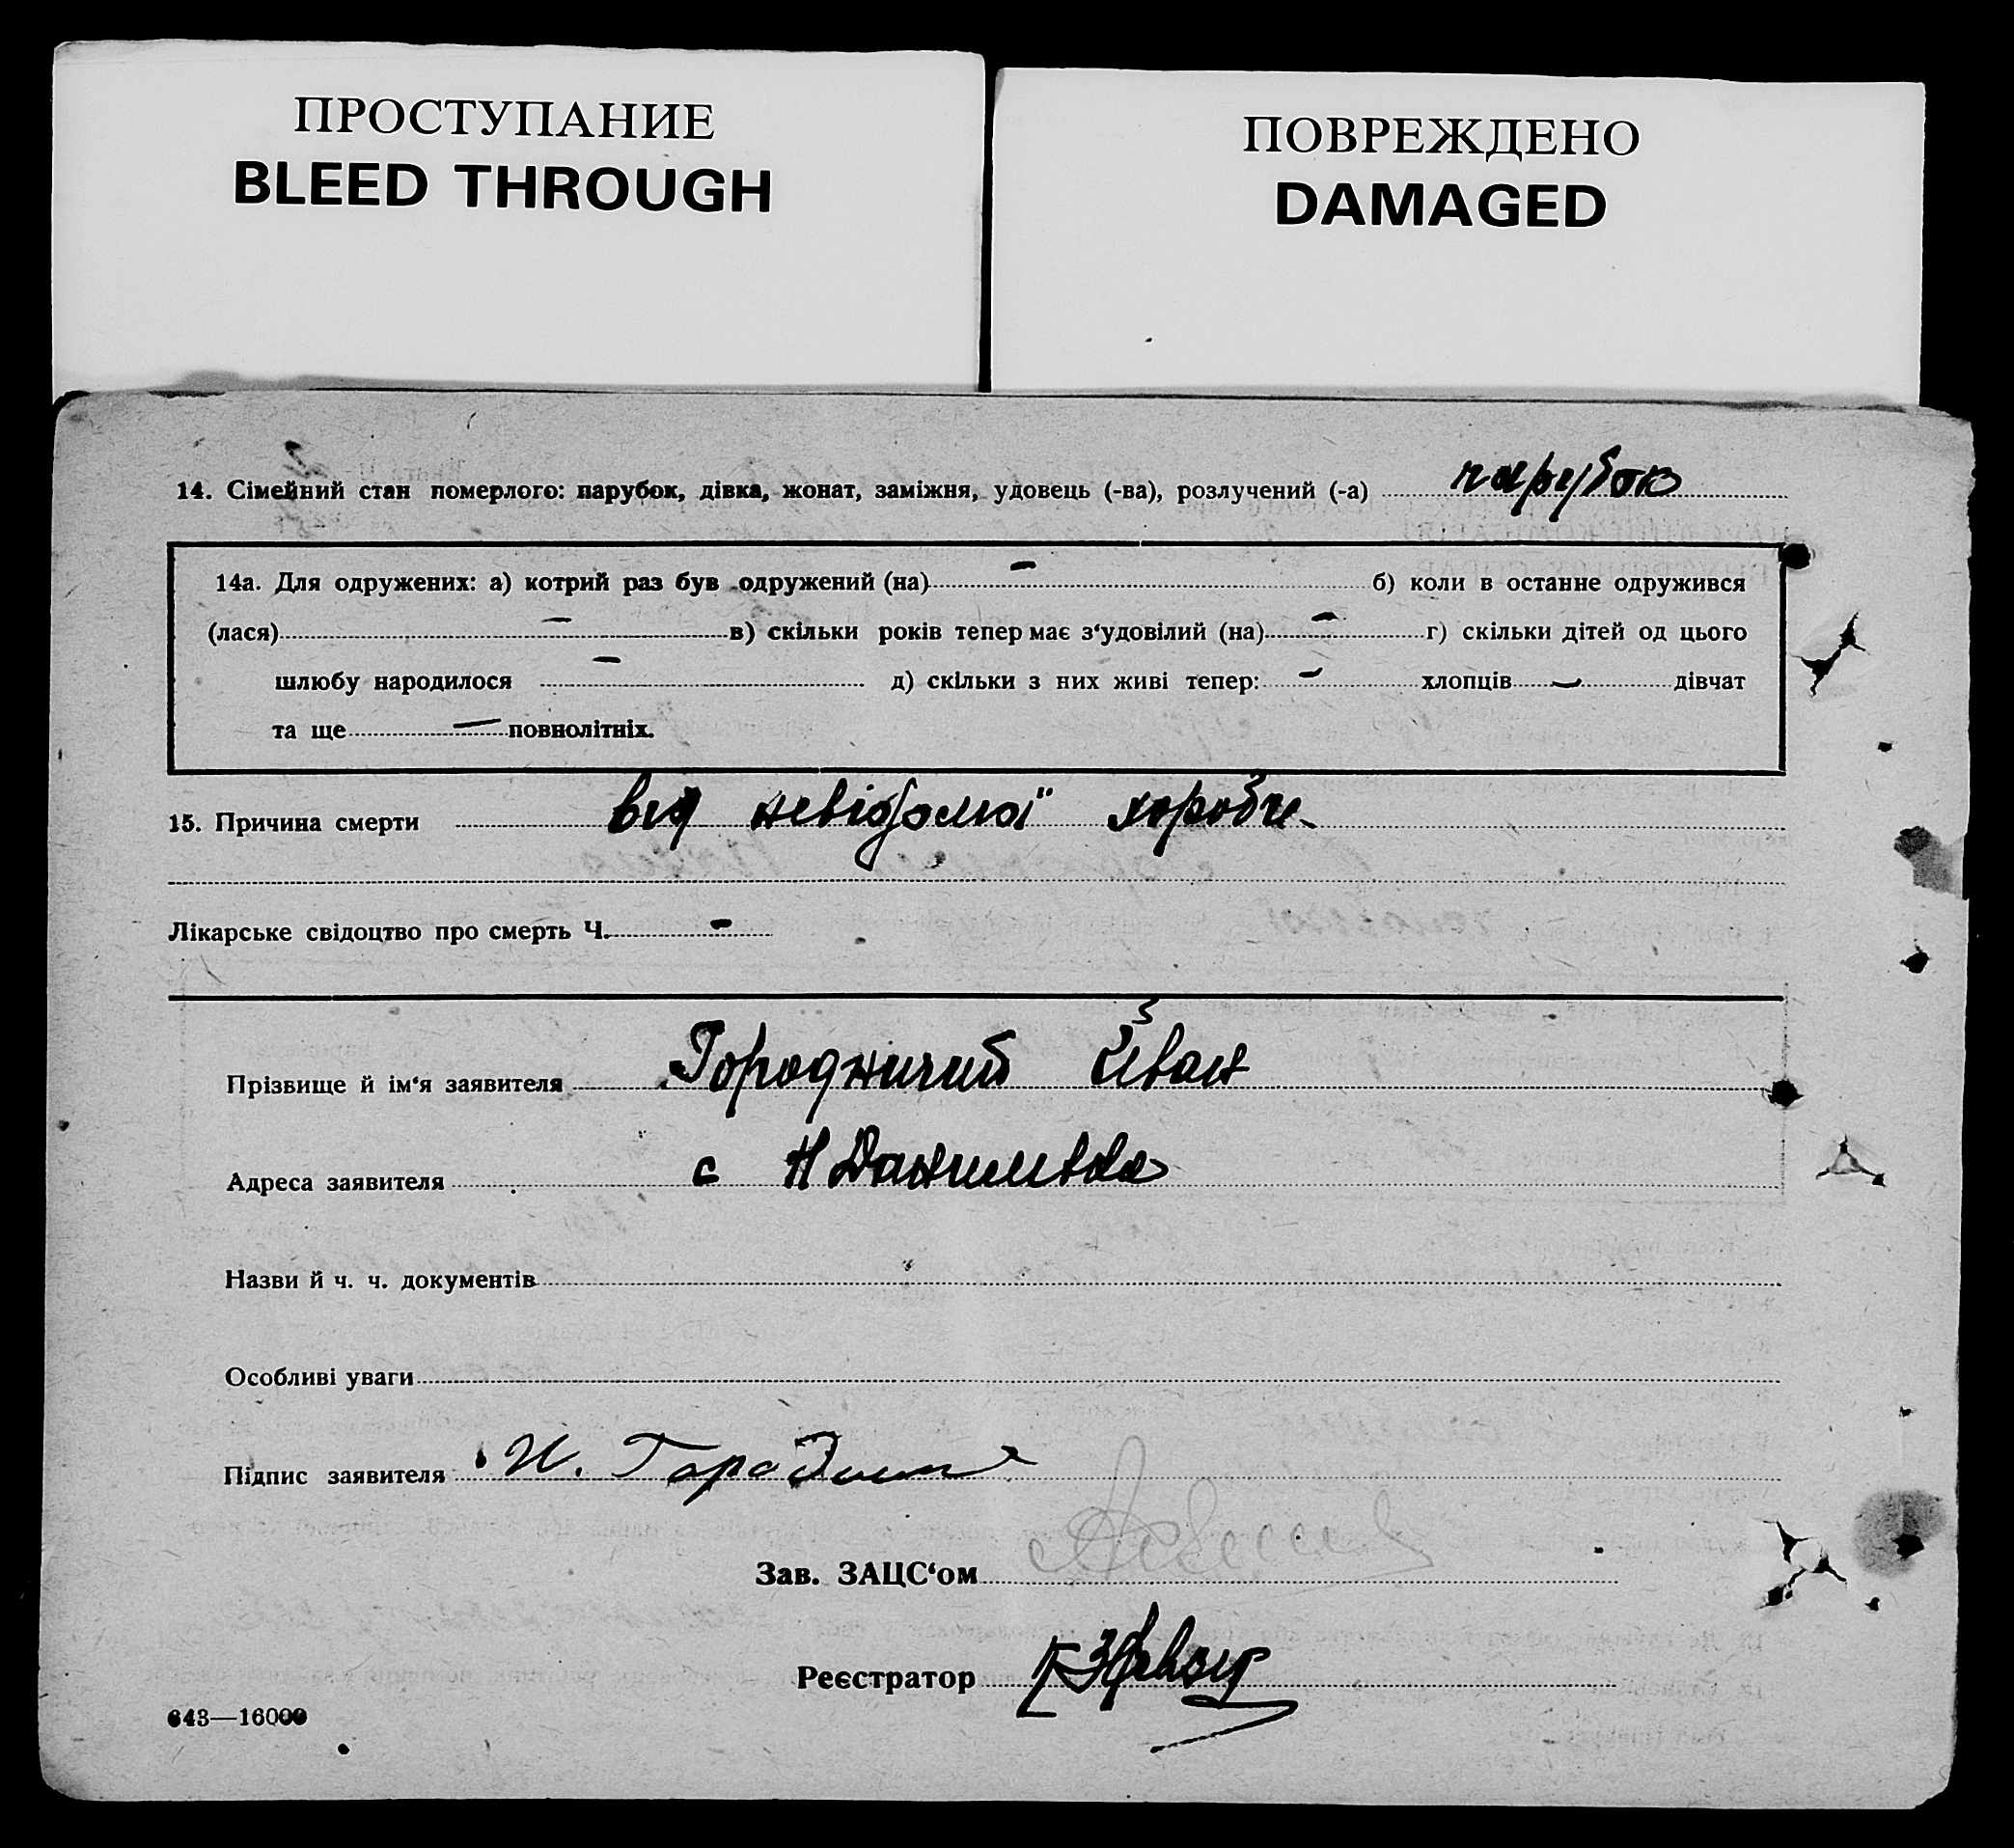 ПРОСТУПАНИЕ
BLEED THROUGH
ПОВРЕЖДЕНО
DAMAGED
14. Сімейний стан померлого: парубок, дівка, жонат, заміжня, удовець (-ва), розлучений (-а) парубок
14а. Для одружених: а) котрий раз був одружений (на) – б) коли в останнє одружився
(лася) – в) скільки років тепер має з‘удовілий (на) – г) скільки дітей од цього
шлюбу народилося – д) скільки з них живі тепер: – хлопців – дівчат
та ще – повнолітніх.
15. Причина смерти від невідомої хороби
Лікарське свідоцтво про смерть Ч. –
Прізвище й ім‘я заявителя Городничий Іван
Адреса заявителя с Н Данилівка
Назви й ч. ч. документів
Особливі уваги
Підпис заявителя И. Городни
Зав. ЗАЦС‘ом
Реєстратор
643—16000